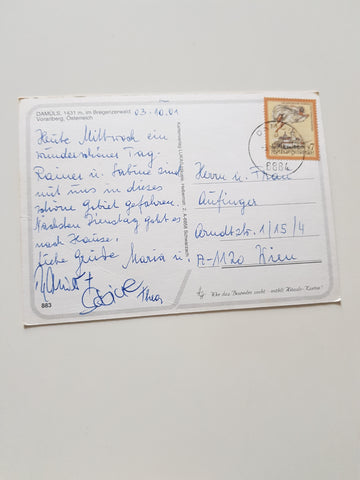 DAMÜLS, 1431 m, im Bregenzerwald
Vorarlberg, Österreich
03.10.01
Heute Mittwoch ein
wunderschöner Tag.
Rainer u. Sabine sind
mit uns in dieses
schöne Gebiet gefahren.
Nächsten Dienstag geht es
nach Hause.
Liebe Grüße Maria u.
Sabine Theo
883
6884
Herrn u. Frau
Aufinger
Arndtstr. 1/15/4
A-1120 Wien
Wer das Besondere sucht - wählt Hämmerle-Karten